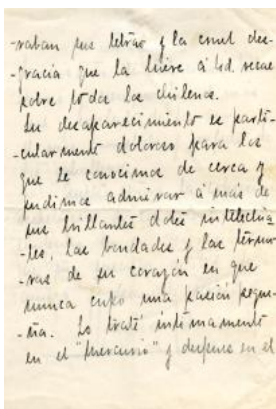 -raban sus letras y la cruel des-
-gracia que la hiere á Ud. recae
sobre todos los chilenos.
Su desaparecimiento es parti-
-cularmente doloroso para los
que le conocimos de cerca y
pudimos admirar á más de
sus brillantes dotes intelectua-
-les, las bondades y las ternu-
-ras de su corazón en que
nunca cupo una pasión peque-
-ña. Lo traté íntimamente
en el "Mercurio" y despues en el